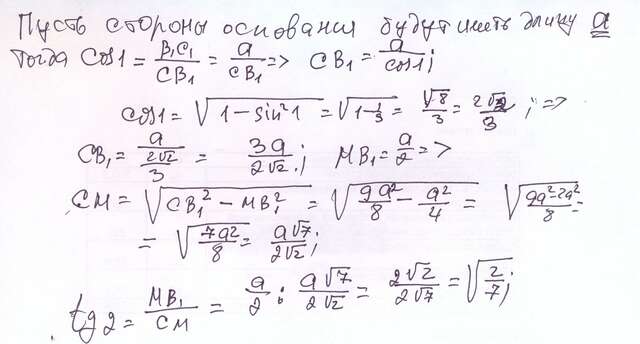 Пусть стороны основания будут иметь длину a
тогда Cos1 = B₁C₁/CB₁ = a/CB₁ => CB₁ = a/cos1;
cos1 = √(1 - sin²1) = √(1 - 1/3) = √8/3 = 2√2/3; =>
CB₁ = a/(2√2/3) = 3a/2√2; MB₁ = a/2 =>
CM = √(CB₁² - MB₁²) = √(9a²/8 - a²/4) = √((9a² - 2a²)/8) =
= √(7a²/8) = a√7/2√2;
tg2 = MB₁/CM = a/2 : a√7/2√2 = 2√2/2√7 = √(2/7);